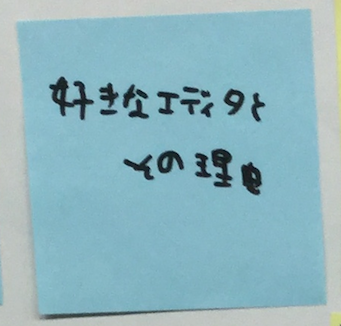 好きなエディタと
その理由